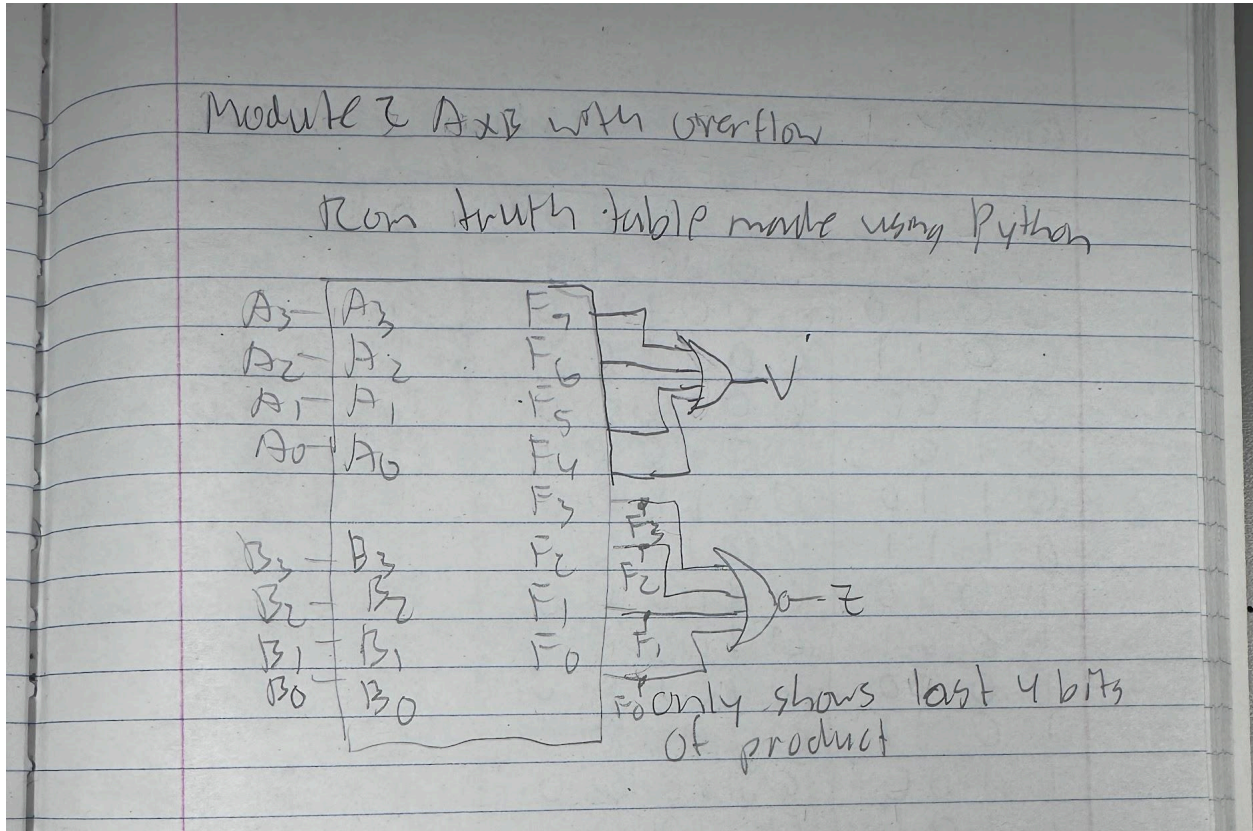 Module Z AxB with overflow
Rom truth table made using Python
A3 A3 F7
A2 A2 F6 V
A1 A1 F5
A0 A0 F4
F3 F3
B3 B3 F2 F2
B2 B2 F1 Z
B1 B1 F0 F1
B0 B0 F0 only shows last 4 bits
of product